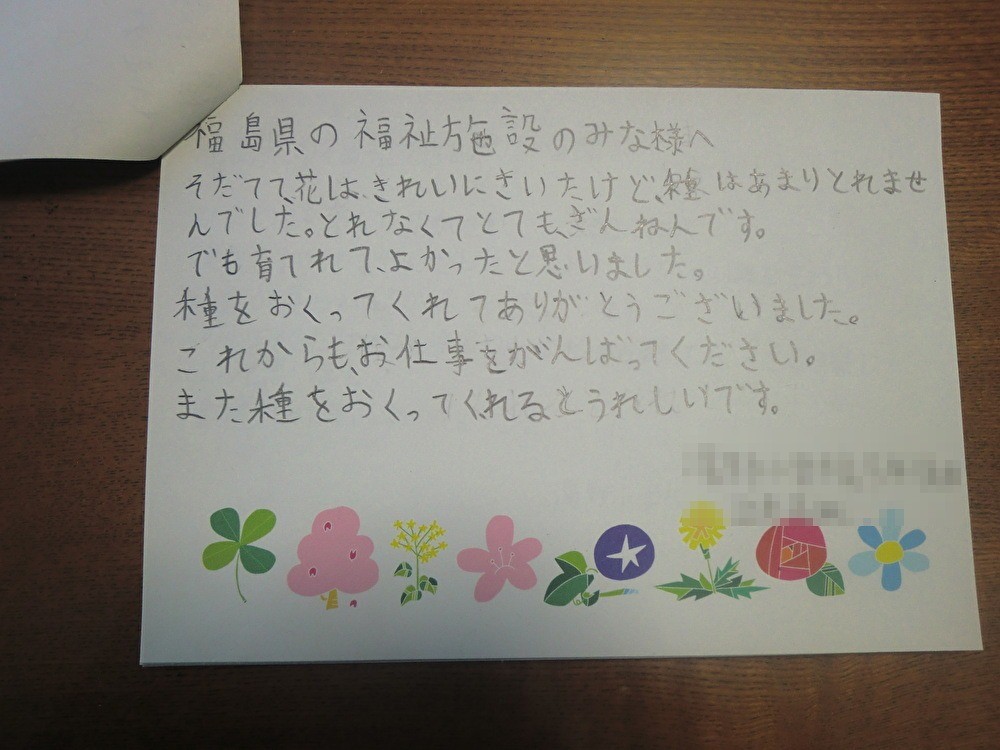 福島県の福祉施設のみな様へ
そだてて、花は、きれいにさいたけど、種はあまりとれませ
んでした。とれなくてとても、ざんねんです。
でも育てれて、よかったと思いました。
種をおくってくれてありがとうございました。
これからも、お仕事をがんばってください。
また種をおくってくれるとうれしいです。